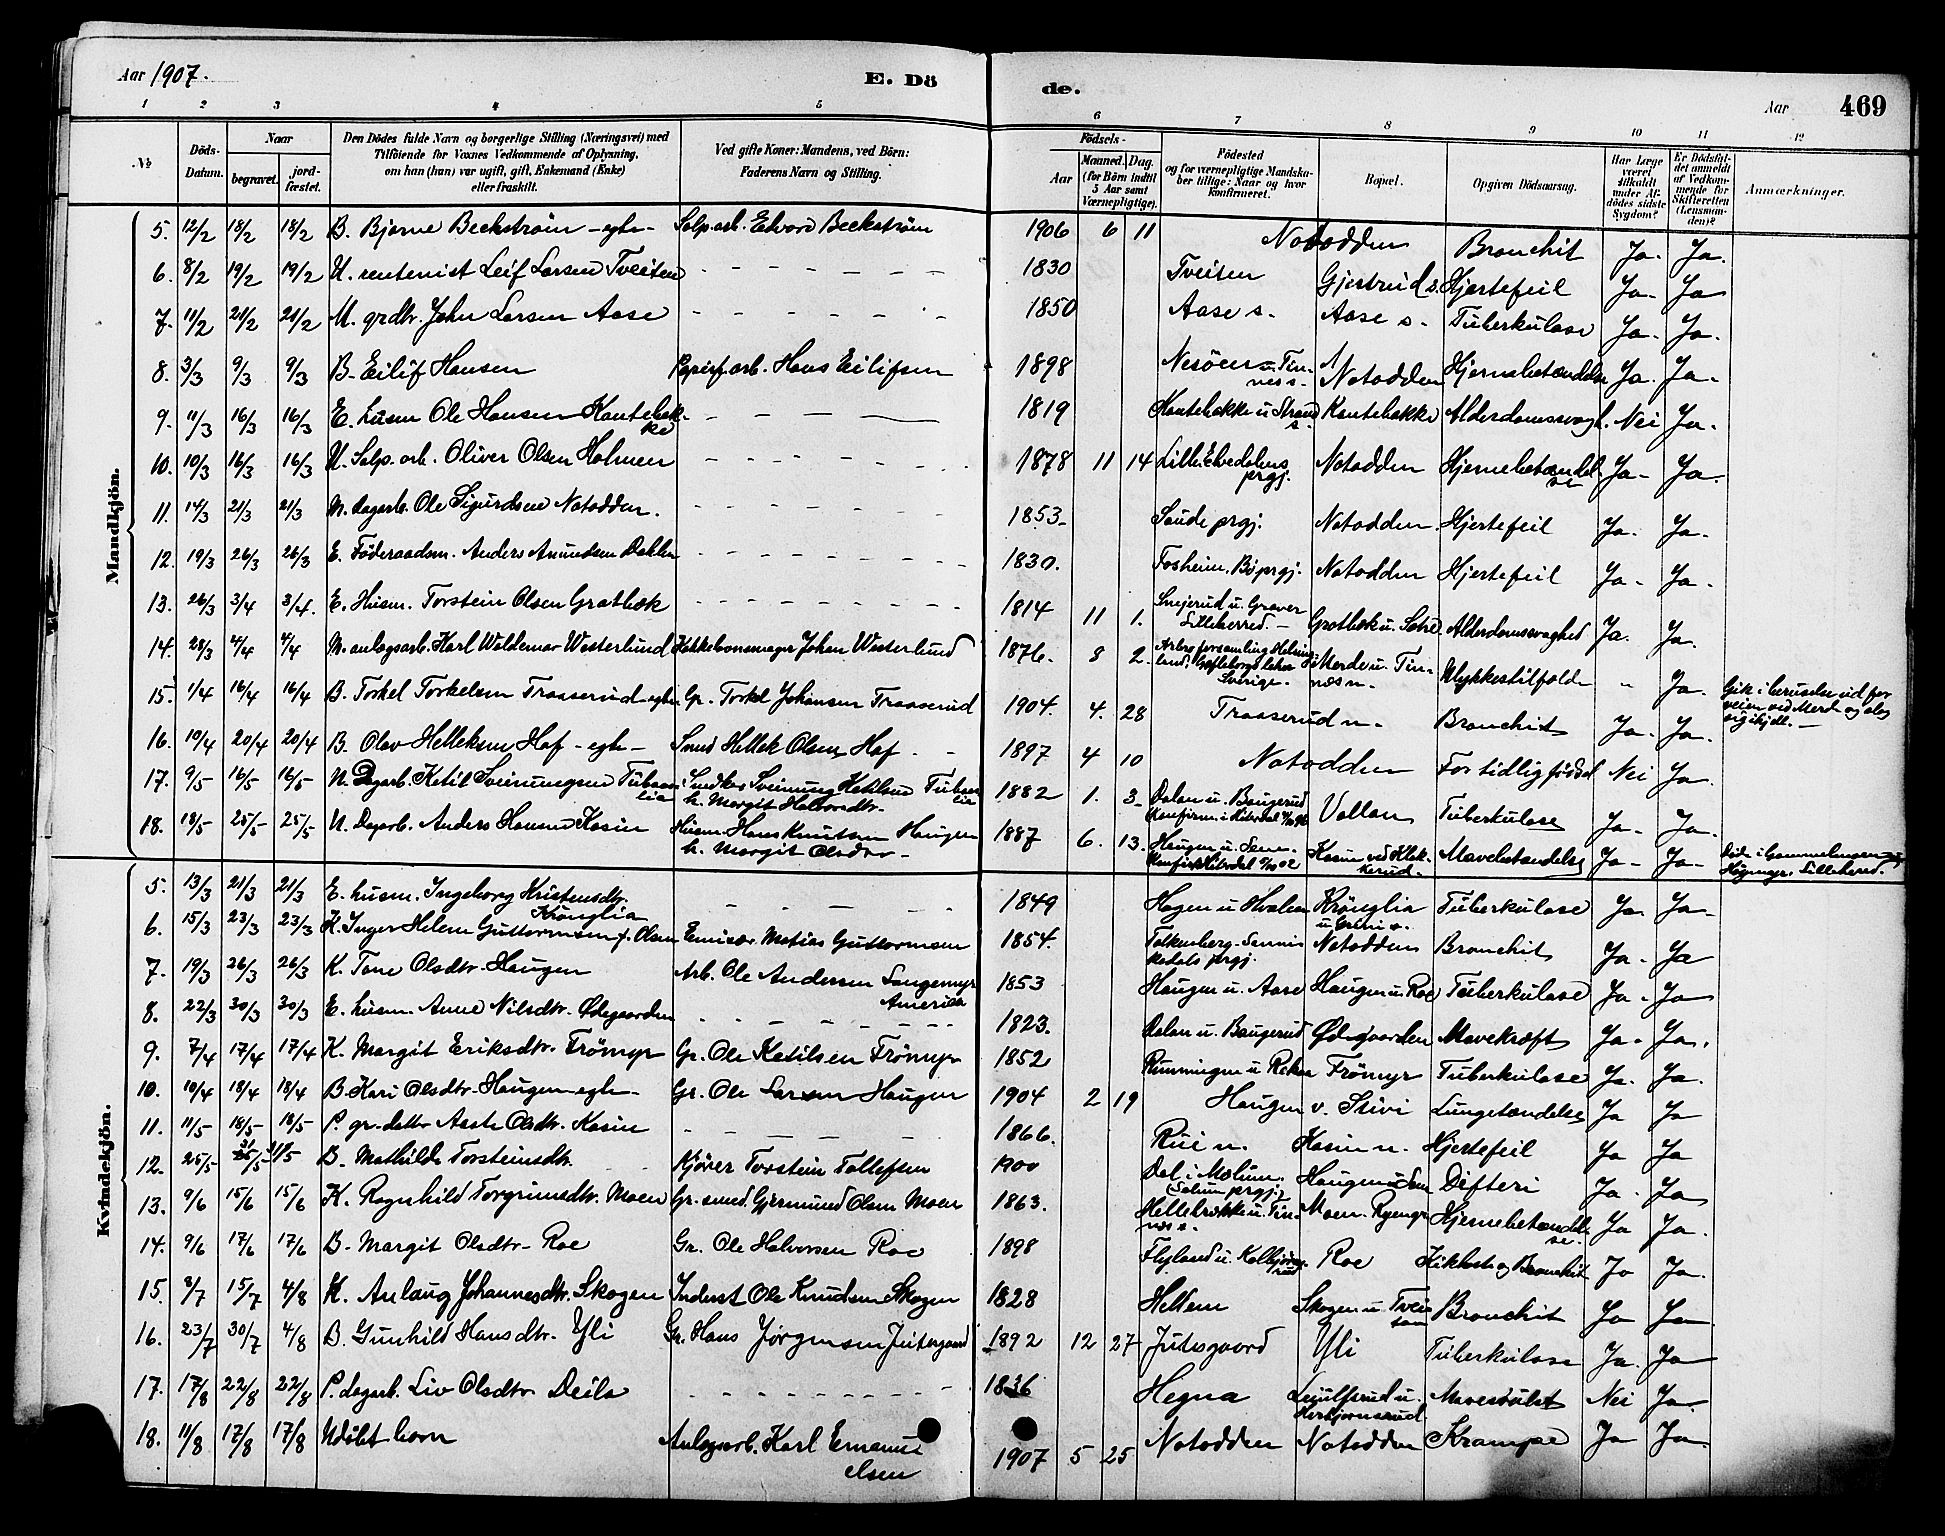 Aar 1907.
E. Dö
de.
Aar
469
1 2 3 4 5 6 7 8 9 10 11 12
No
Döds-Datum.
Naar
begravet.
jord-fæstet.
Den Dödes fulde Navn og borgerlige Stilling (Næringsvei) med
Tilföiende for Voxnes Vedkommende af Oplysning,
om han (hun) var ugift, gift, Enkemand (Enke)
eller fraskilt.
Ved gifte Koner: Mandens, ved Börn:
Faderens Navn og Stilling.
Födsels-
Aar
Maaned. Dag.
(for Börn indtil
5 Aar samt
Værnepligtige).
Födested
og for værnepligtige Mandska-
ber tillige: Naar og hvor
konfirmeret.
Bopæl.
Opgiven Dödsaarsag.
Har Læge
været
tilkaldt
under Af-
dödes sidste
Sygdom?
Er Dödsfal-
det anmeldt
af Vedkom-
mende for
Skifteretten
(Lensman-
den)?
Anmærkninger.
Mandkjön.
5. 12/2 18/2 18/2 B. Bjarne Beckström - egte - Salp.arb. Edvard Beckström 1906 6 11 Notodden Bronchit Ja. Ja.
6. 8/2 19/2 19/2 U. rentenist Leif Larsen Tveiten 1830 Tveiten Gjestrud s. Hjertefeil Ja. Ja
7. 11/2 21/2 21/2 M. grdbr. John Larsen Aase 1850 Aase s. Aase s. Tuberkulose Ja. Ja.
8. 3/3 9/3 9/3 B. Eilif Hansen Papirf.arb. Hans Eilifsen 1898 Nesöen u. Tin-
nes s. Notodden Hjernebetændelse Ja. Ja.
9. 11/3 16/3 16/3 E. husm. Ole Hansen Kantebak-
ke 1819 Kantebakke u Strand
s. Kantebakke Alderdomssvagh. Nei Ja.
10. 10/3 16/3 16/3 U. Salp. arb. Oliver Olsen Holmen 1878 11 14 Lille Elvedalens
prgj. Notodden Hjernebetændel
se Ja. Ja.
11. 14/3 21/3 21/3 M. Dagarb. Ole Sigurdsen Notodden. 1853. Saude prgj. Notodden. Hjertefeil Ja. Ja.
12. 19/3 26/3 26/3 E. Föderaadsm. Anders Amundsen Dahlen 1830. Fosheim, Bö prgj. Notodden Hjertefeil Ja. Ja.
13. 26/3 3/4 3/4. E. Husm. Torstein Olsen Grotbæk 1814 11 1. u. Graver
Lilleherred. Grotbæk u. Sætre Alderdomssvaghed Ja. Ja.
14. 28/3 4/4 4/4 M. anlægsarb. Karl Waldemar Westerlund Johan Westerlund 1876. 8 2. Arbro forsamling Helsing-
land, Gefleborgs lehn
Sverige. Merde u. Tin-
næs n. Ulykkestilfælde " Ja. Gik i beruselse ud for
veien ved Merde og slog
sig ihjel.
15. 1/4 16/4 16/4 B. Torkel Torkelsen Traaserud - egte Gr. Torkel Johansen Traaserud 1904. 4. 28 Traaserud n. Bronchit Ja. Ja.
16. 10/4 20/4 20/4 B. Olav Helleksen Haf - egte - Smed Hellek Olsen Haf 1897 4 10 Notodden For tidlig födsel Nei Ja.
17. 9/5 16/5 16/5 U. Dagarb. Ketil Sveinungsen Tubaas-
lia Sveinung Ketilsen Tubaas
lia
h. Margit Halvorsdtr. 1882 1. 3. Dalen u. Baugerud
Konfirm. i Hitterdal Vallan Tuberkulose Ja. Ja.
18. 18/5 25/5 25/5 U. Dagarb. Anders Hansen Kasin Husm. Hans Knutsen Haugen
h. Margit Olsdtr. 1887 6. 13. Haugen u. Sem.
Konf. i Hitterdal 02 Kasin ved Klek-
kerud. Mavebetændelse Ja. Ja. Döde i
Högmyr, Lilleherred.
Kvindekjön.
5. 13/3 21/3 21/3 E. husm. Ingeborg Kristensdtr.
Krönglia 1849 Hagen u Hvalen Krönglia
u Grini s. Tuberkulose Ja. Ja.
6. 15/3 23/3 23/3 K. Inger Helene Guttormsen f. Olsen Emissær Matias Guttormsen 1854. Falkenberg - Sannis
kedals prgj. Notodden Bronchit Ja. Ja
7. 19/3 26/3 26/3 K. Tone Olsdtr. Haugen Arb. Ole Andersen Langemyr
Amerika 1853 Haugen u. Aase Haugen u Roe Tuberkulose Ja. Ja
8. 22/3 30/3 30/3 E. husm. Anne Nilsdtr. Ødegaarden 1823. Dalen u. Baugerud Ødegaarden Mavekræft Ja. Ja.
9. 7/4 17/4 17/4 K. Margit Eriksdtr. Frömyr Gr. Ole Ketilsen Frömyr 1852 Rumingen u Frömyr Tuberkulose Ja. Ja.
10. 10/4 18/4 18/4 B. Kari Olsdtr. Haugen egte - Gr. Ole Larsen Haugen 1904 2 19 Haugen v. Stivi Lungetændelse Ja Ja
11. 11/5 18/5 18/5 P. gr. datter Aaste Olsdtr. Kasin 1866. Rui n. Kasin n. Hjertefeil Ja Ja
12. 25/5 31/5 31/5 B. Mathilde Torsteinsdtr. Kjörer Torstein Tollefsen 1900 Dal i Mælum.
(Solum prgj.) Haugen u Sem Difteri Ja. Ja
13. 9/6 15/6 15/6 K. Ragnhild Torgrimsdtr. Moen Gr. smed. Gjermund Olsen Moen 1863. Hellebrække u. Tin-
næs s. Moen. Ryenge Hjernebetændel
se. Ja Ja.
14. 9/6 17/6 17/6 B. Margit Olsdtr. Roe Gr. Ole Halvorsen Roe 1898 Flyland u. Kolbjörns-
rud Roe Kikhoste og Bronchit Ja Ja.
15. 8/7 15/7 4/8 K. Anlaug Johannesdtr. Skogen Inderst Ole Knudsen Skogen 1828 Heltem Skogen u. Tvei
ten Bronchit Ja Ja
16. 23/7 30/7 4/8 B. Gunhild Hansdtr. Yli Gr. Hans Jörgensen Jutesgaard 1892 12 27 Jutesgaard Yli Tuberkulose Ja. Ja
17. 17/8 22/8 22/8 P. dagarb. Liv Olsdtr Deila 1836 Hegna u.
Herbjornsrud Mavesvulst Nei Ja.
18. 11/8 17/8 17/8 Udöbt barn Anlægsarb. Karl Emanuel
elsen 1907 5 25 Notodden Notodden Krampe Ja Ja.